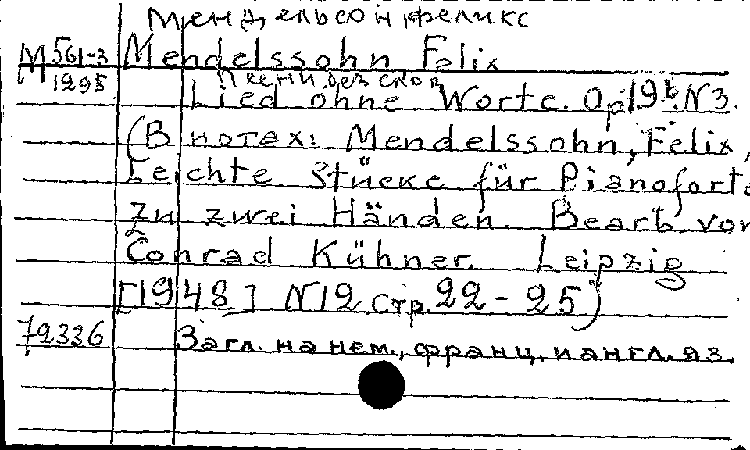 Мендельсон, Феликс
М 561-3 Mendelssohn, Felix
1295
Песни без слов
Lied ohne Worte. Op. 19b N3.
(В нотах: Mendelssohn, Felix,
Leichte Stücke für Pianoforte
zu zwei Händen. Bearb. von
Conrad Kühner. Leipzig
[1948] N12 стр. 22-25)
72336 Загл. на нем., франц. и англ. яз.